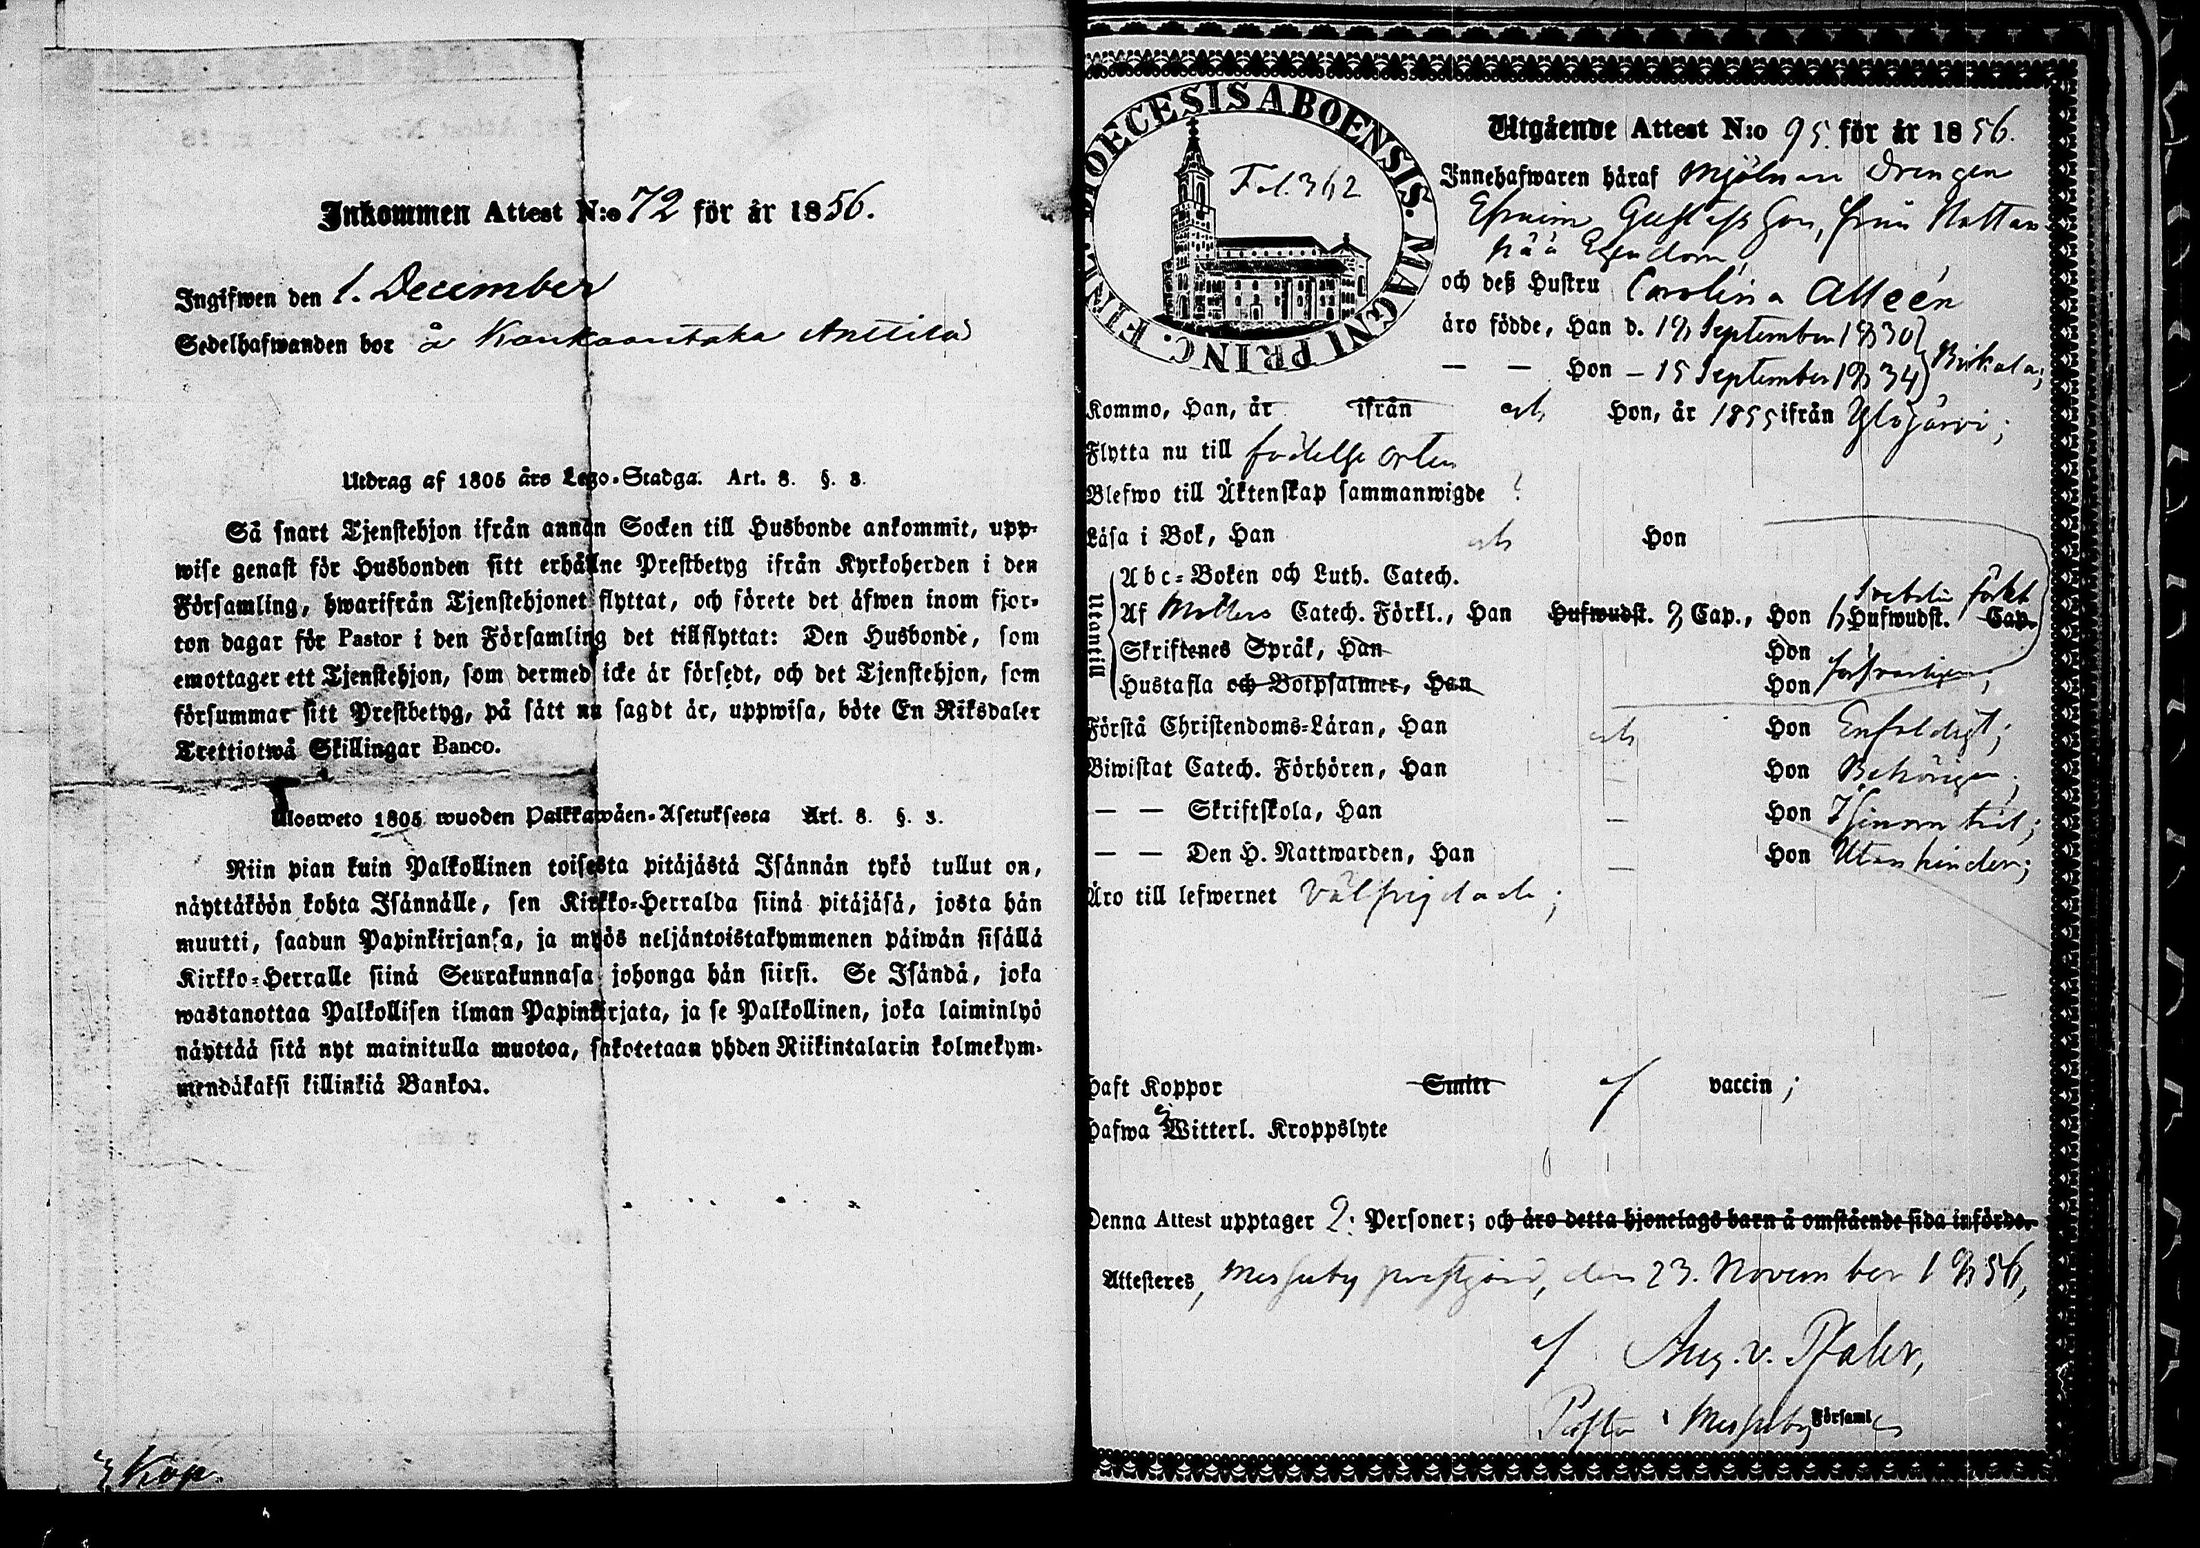 Inkommen Attest N:o 72 för år 1856.
Ingifwen den 1. December
Sedelhafwanden bor å Kankaantaka Anttila
Utdrag af 1805 års Lego-Stadga. Art. 8. §. 3.
Så snart Tjenstehjon ifrån annan Socken till Husbonde ankommit, upp-
wise genast för Husbonden sitt erhållne Prestbetyg ifrån Kyrkoherden i den
Församling, hwarifrån Tjenstehjonet flyttat, och förete det äfwen inom fjor-
ton dagar för Pastor i den Församling det tillflyttat: Den Husbonde, som
emottager ett Tjenstehjon, som dermed icke är försedt, och det Tjenstehjon, som
försummar sitt Prestbetyg, på sätt nu sagdt är, uppwisa, böte En Riksdaler
Trettiotwå Skillingar Banco.
Ulosweto 1805 wuoden Palkkawäen-Asetuksesta Art. 8. §. 3.
Niin pian kuin Palkollinen toisesta pitäjästä Isännän tykö tullut on,
näyttäköön kohta Isännälle, sen Kirkko-Herralda siinä pitäjäsä, josta hän
muutti, saadun Papinkirjansa, ja myös neljäntoistakymmenen päiwän sisällä
Kirkko-Herralle siinä Seurakunnasa johonga hän siirsi. Se Isändä, joka
wastanottaa Palkollisen ilman Papinkirjata, ja se Palkollinen, joka laiminlyö
näyttää sitä nyt mainitulla muotoa, sakotetaan yhden Riikintalarin kolmekym-
mendäkaksi killinkiä Bankoa.
3 Kop.
FINL. DIOECESIS ABOENSIS. MAGNI PRINC.
Fol. 362
Utgående Attest N:o 95. för år 1856.
Innehafwaren häraf Mjölnare Drengen
Efraim Gustafsson, från Nattan
pää Egendom,
och deß Hustru Carolina Alleén
äro födde, Han d. 18 September 1830
— — Hon – 15 September 1834 Birkala;
Kommo, Han, år ifrån och Hon, år 1855 ifrån Ylöjärvi;
Flytta nu till födelse orten
Blefwo till Äktenskap sammanwigde ?
Läsa i Bok, Han och Hon
Utantill
Abc-Boken och Luth. Catech.
Af Möllers Catech. Förkl., Han Hufwudst. 8 Cap., Hon 6 Hufwudst. Cap.
Skriftenes Språk, Han Hon
Hustafla och Botpsalmer, Han Hon försvarligen,
Förstå Christendoms-Läran, Han och Hon Enfaldigt;
Biwistat Catech. Förhören, Han — Hon Behörigen;
— — Skriftskola, Han — Hon I sinom tid;
— — Den H. Nattwarden, Han — Hon Utan hinder;
Äro till lefwernet välfrejdade;
Haft Koppor Smitt af vaccin;
Hafwa ej Witterl. Kroppslyte
Denna Attest upptager 2: Personer; och äro detta hjonelags barn å omstående sida införde.
Attesteres, Messuby prestgård, den 23. November 1856,
af Aug. v. Pfaler,
Pastor i Messuby Församl